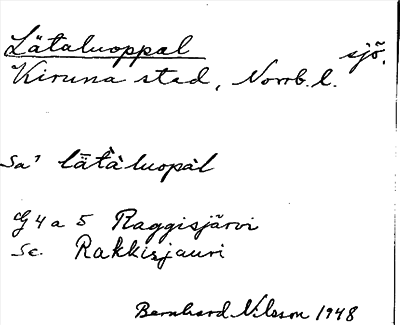 Lätaluoppal sjö.
Kiruna stad, Norrb. l.
Sa' lằtàluopàl
G 4 a 5 Raggisjärvi
Sc. Rakkisjauri
Bernhard Nilsson 1948